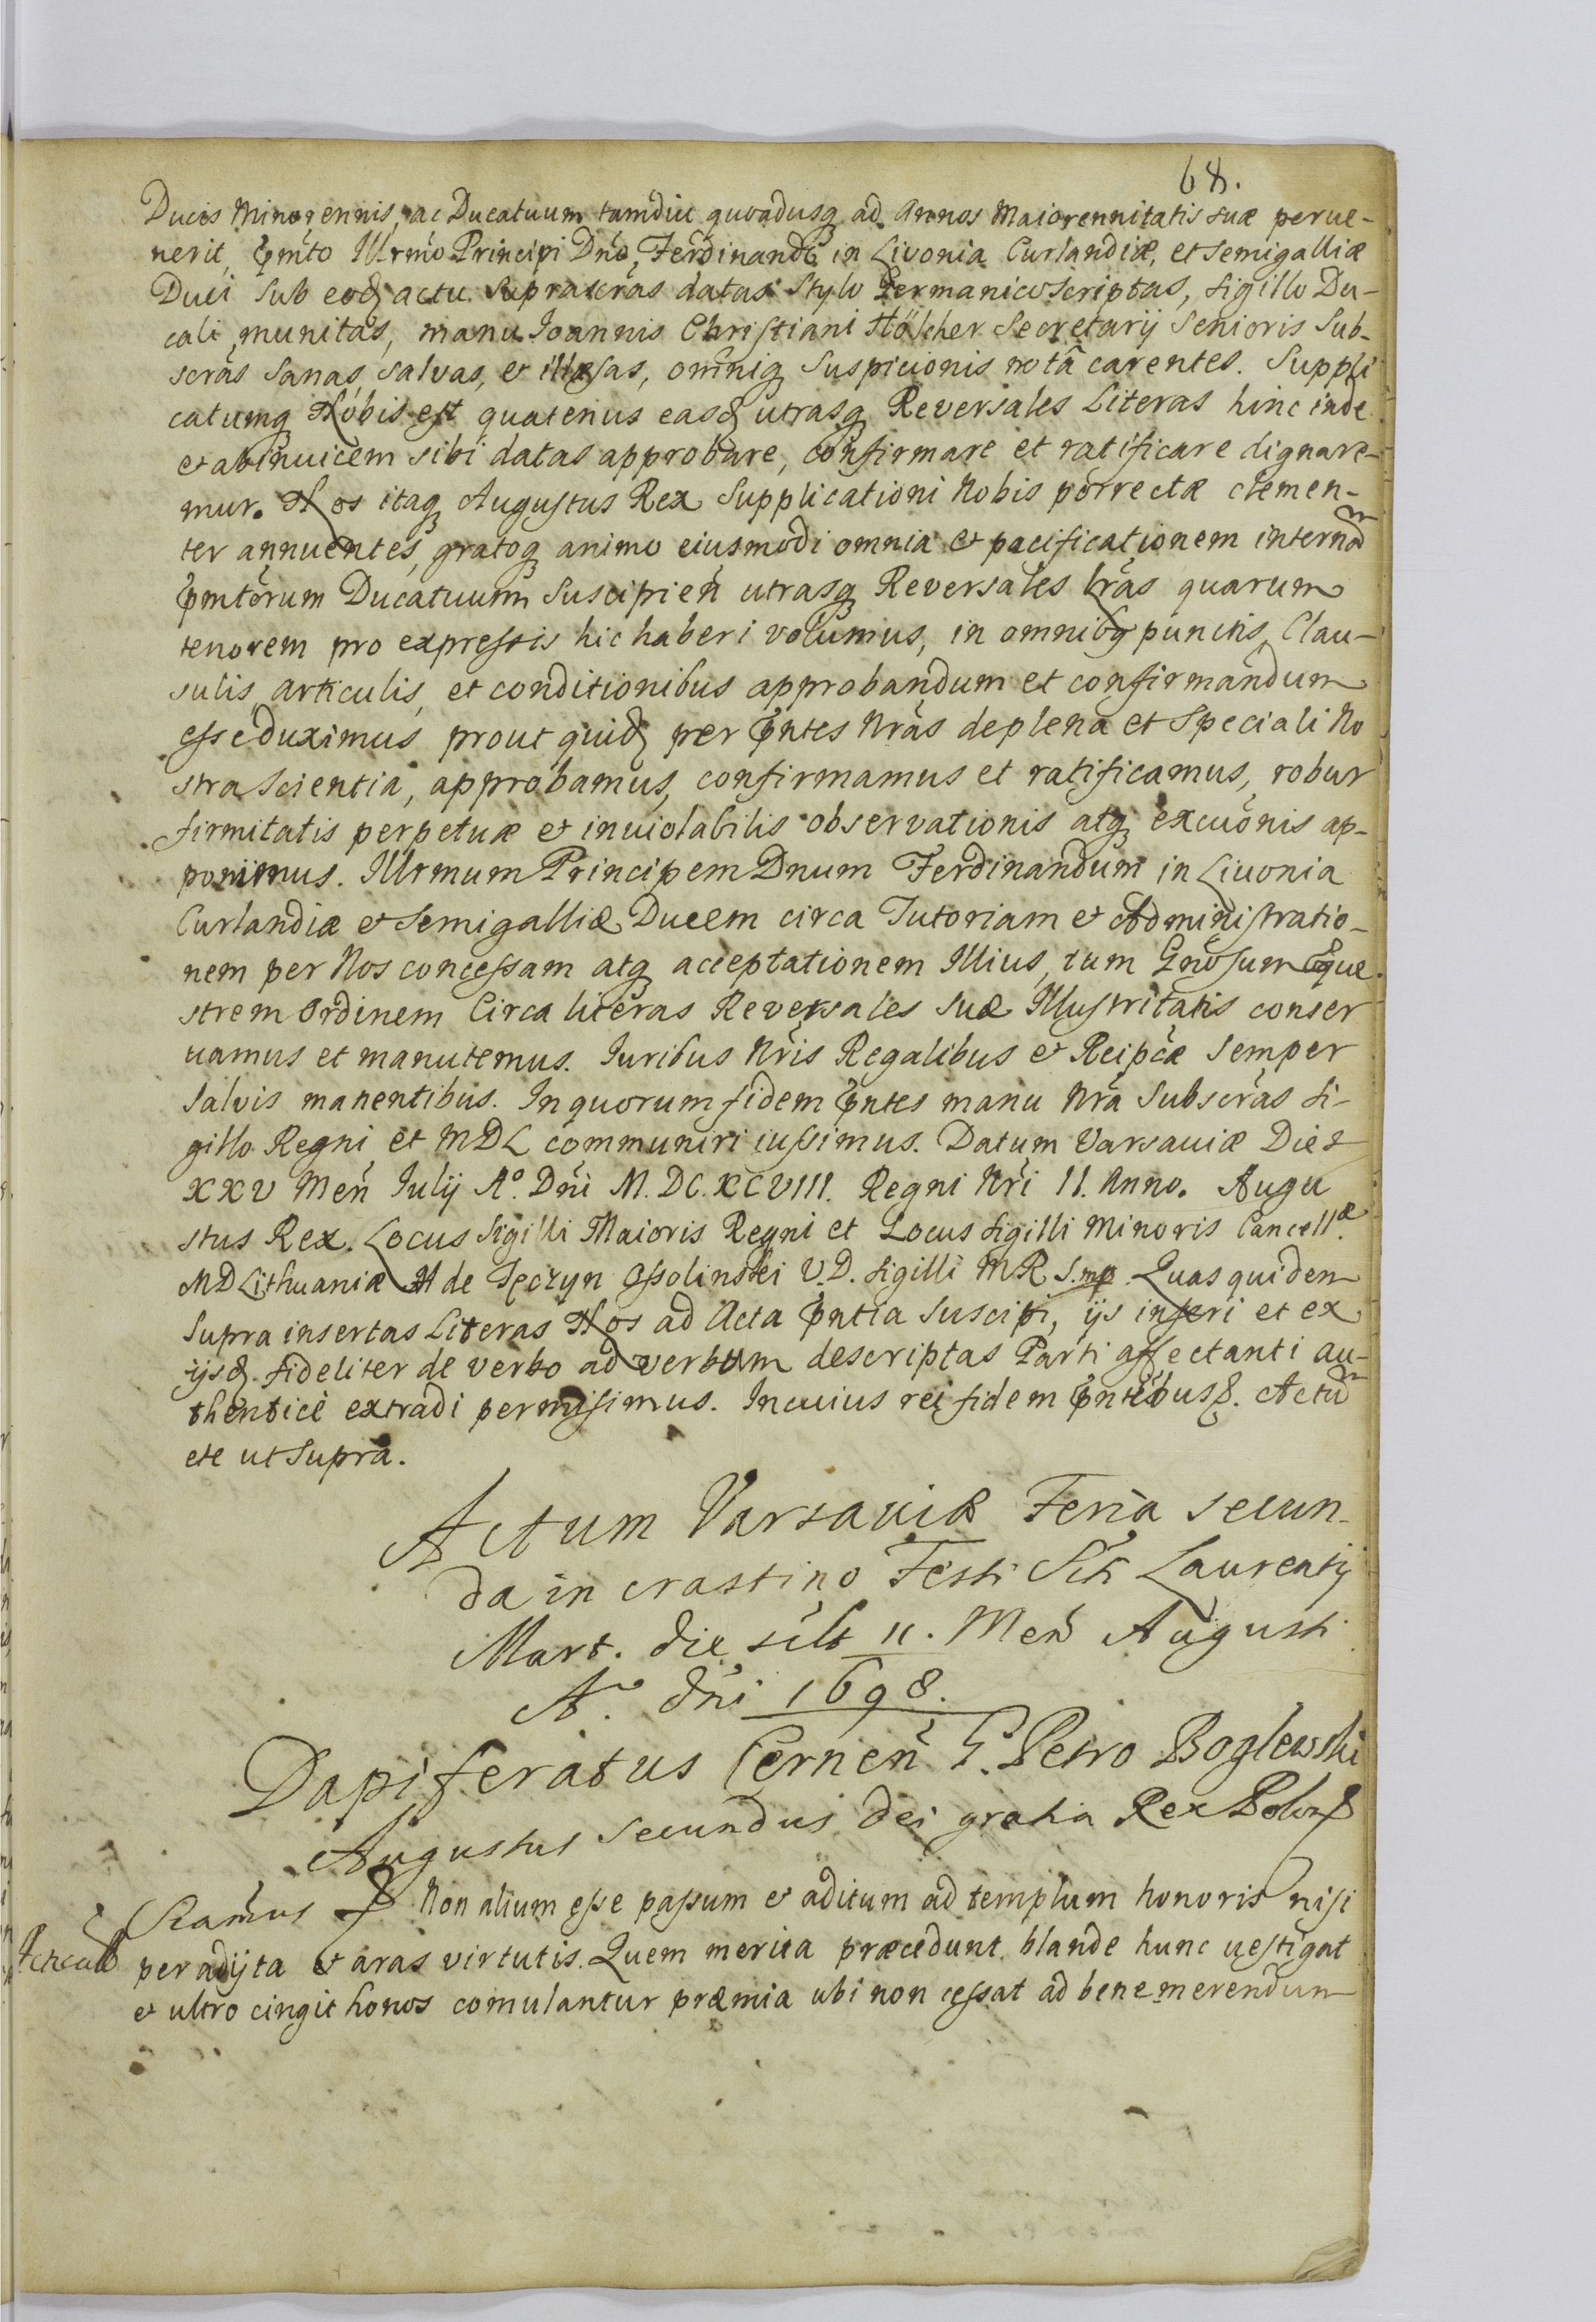 68.
Ducis Minorennis, ac Ducatuum tamdiu quoadusq ad Annos Maiorennitatis suæ perue-
nerit, Ppmto Illrmo Principi Dno, Ferdinando in Livonia Curlandiæ, et Semigalliæ
Duci sub eod actu suprascras datas Stylo Germanico scriptas, sigillo Du-
cali munitas, manu Joannis Christiani Hölcher Secretarij Senioris sub-
scras sanas, salvas, et illæsas, omniq suspicionis nota carentes. Suppli
catumq Nobis est quatenus easd utrasq Reversales Literas hinc inde
et abinuicem sibi datas approbare, confirmare et ratificare dignare-
mur. Nos itaq Augustus Rex supplicationi Nobis porrectæ clemen-
ter annuentes, gratoq animo eiusmodi omnia et pacificationem internam
Ppmtorum Ducatuum suscipien utrasq Reversales lras quarum
tenorem pro expressis hic haberi volumus, in omnibq punctis, Clau-
sulis articulis, et conditionibus approbandum et confirmandum
esse duximus prout quid per Pntes Nras de plena et speciali No
stra scientia, approbamus, confirmamus et ratificamus, robur
firmitatis perpetuæ et inuiolabilis observationis atq excuonis ap-
ponimus. Illrmum Principem Dnum Ferdinandum in Liuonia
Curlandiæ et Semigalliæ Ducem circa Tutoriam et Administratio-
nem per Nos concessam atq acceptationem Illius, tum Gnosum Eque
strem Ordinem Circa literas Reversales suæ Illustritatis conser
uamus et manutemus. Iuribus Nris Regalibus et Reipcæ semper
salvis manentibus. In quorum fidem Pntes manu Nra subscras si-
gillo Regni et MDL communiri iussimus. Datum Varsauiæ Die
XXV Men Julij A° Dni M.DC.XCVIII. Regni Nri II. Anno. Augu
stus Rex. Locus Sigilli Maioris Regni et Locus sigilli Minoris Cancellæ.
MD Lithuaniæ H de Tęczyn Ossolinski V.D. sigilli MR S.mp. Quas quidem
supra insertas Literas Nos ad Acta Pntia suscipi, ijs inseri et ex
ijsd. fideliter de verbo ad verbum descriptas Parti affectanti au-
thentice extradi permisimus. In cuius rei fidem Pntibus. Actum
etc ut supra.
Actum Varsauiæ Feria secun-
da in crastino Festi Scti Laurentij
Mart. die sclt 11. Men Augusti
A° dni 1698.
Dapiferatus Cernen G. Petro Boglewski
Augustus secundus Dei gratia Rex Polon
Scamus Non alium esse passum et aditum ad templum honoris nisi
per adyta et aras virtutis. Quem merita præcedunt blande hunc uestigat
et ultro cingit honos comulantur præmia ubi non cessat ad bene merendum